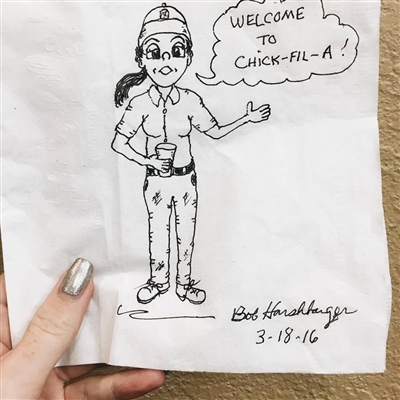 WELCOME
TO
CHICK-FIL-A!
Bob Harshbarger
3-18-16